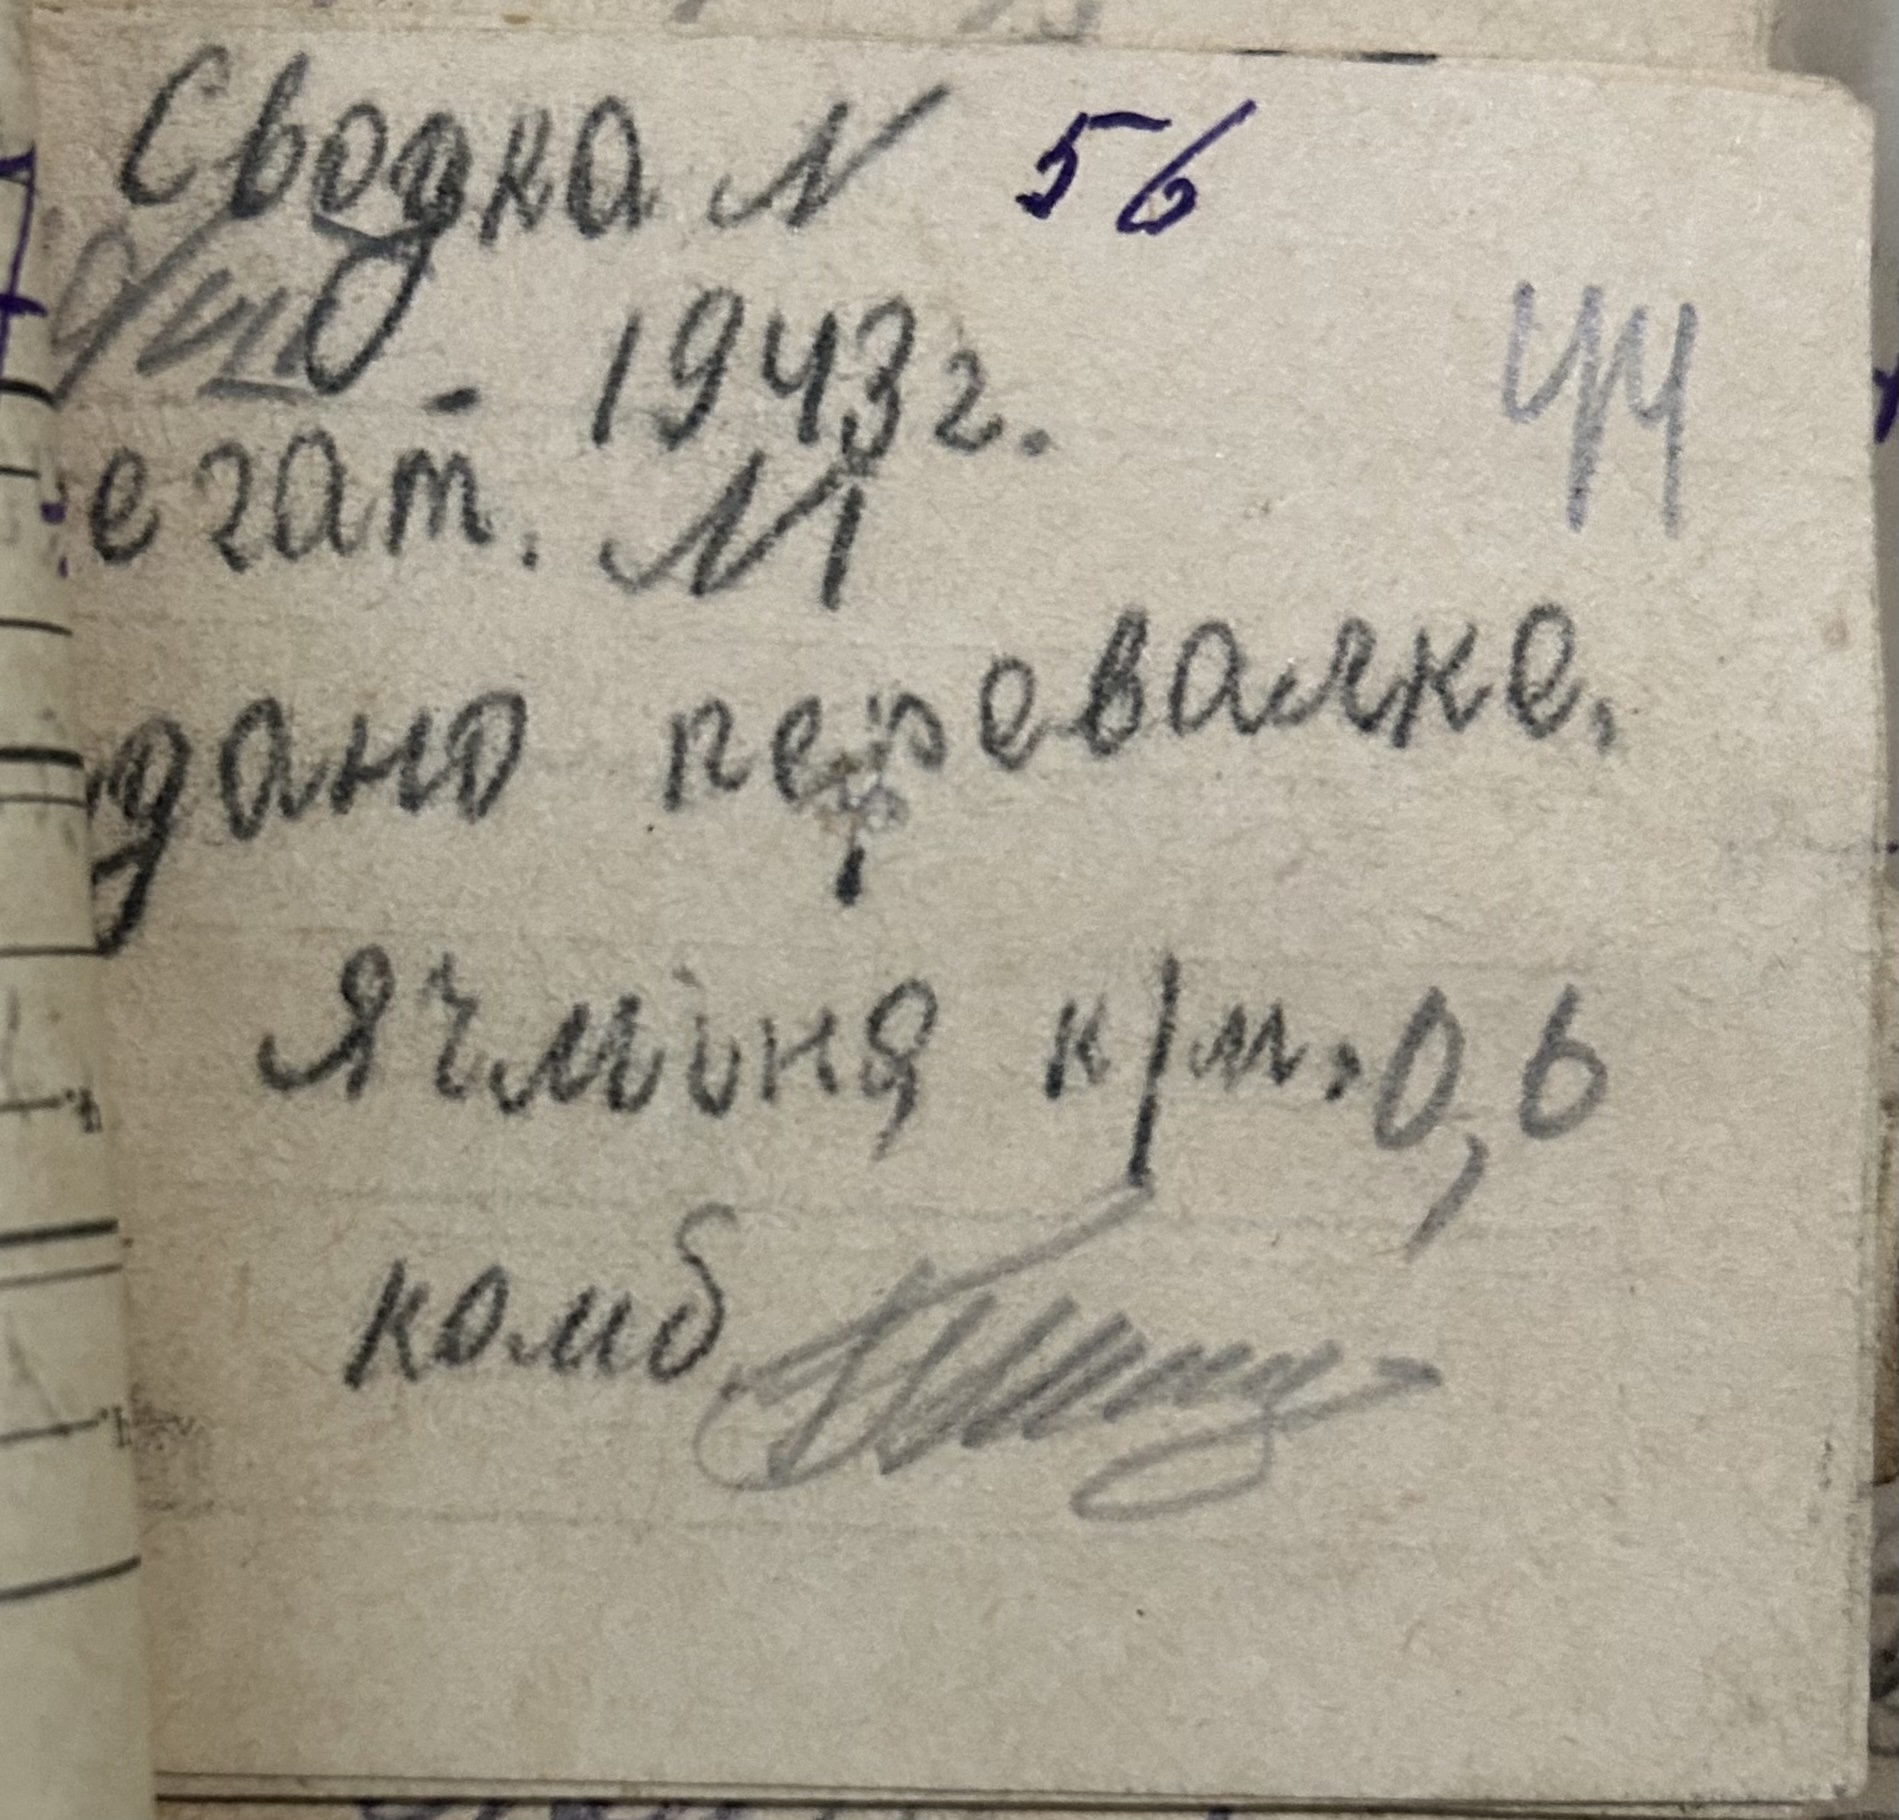 Сводка N 56
/VIII - 1943г.
44
егат. N1
дано перевалке.
ячминя к/м. 0,6
комб